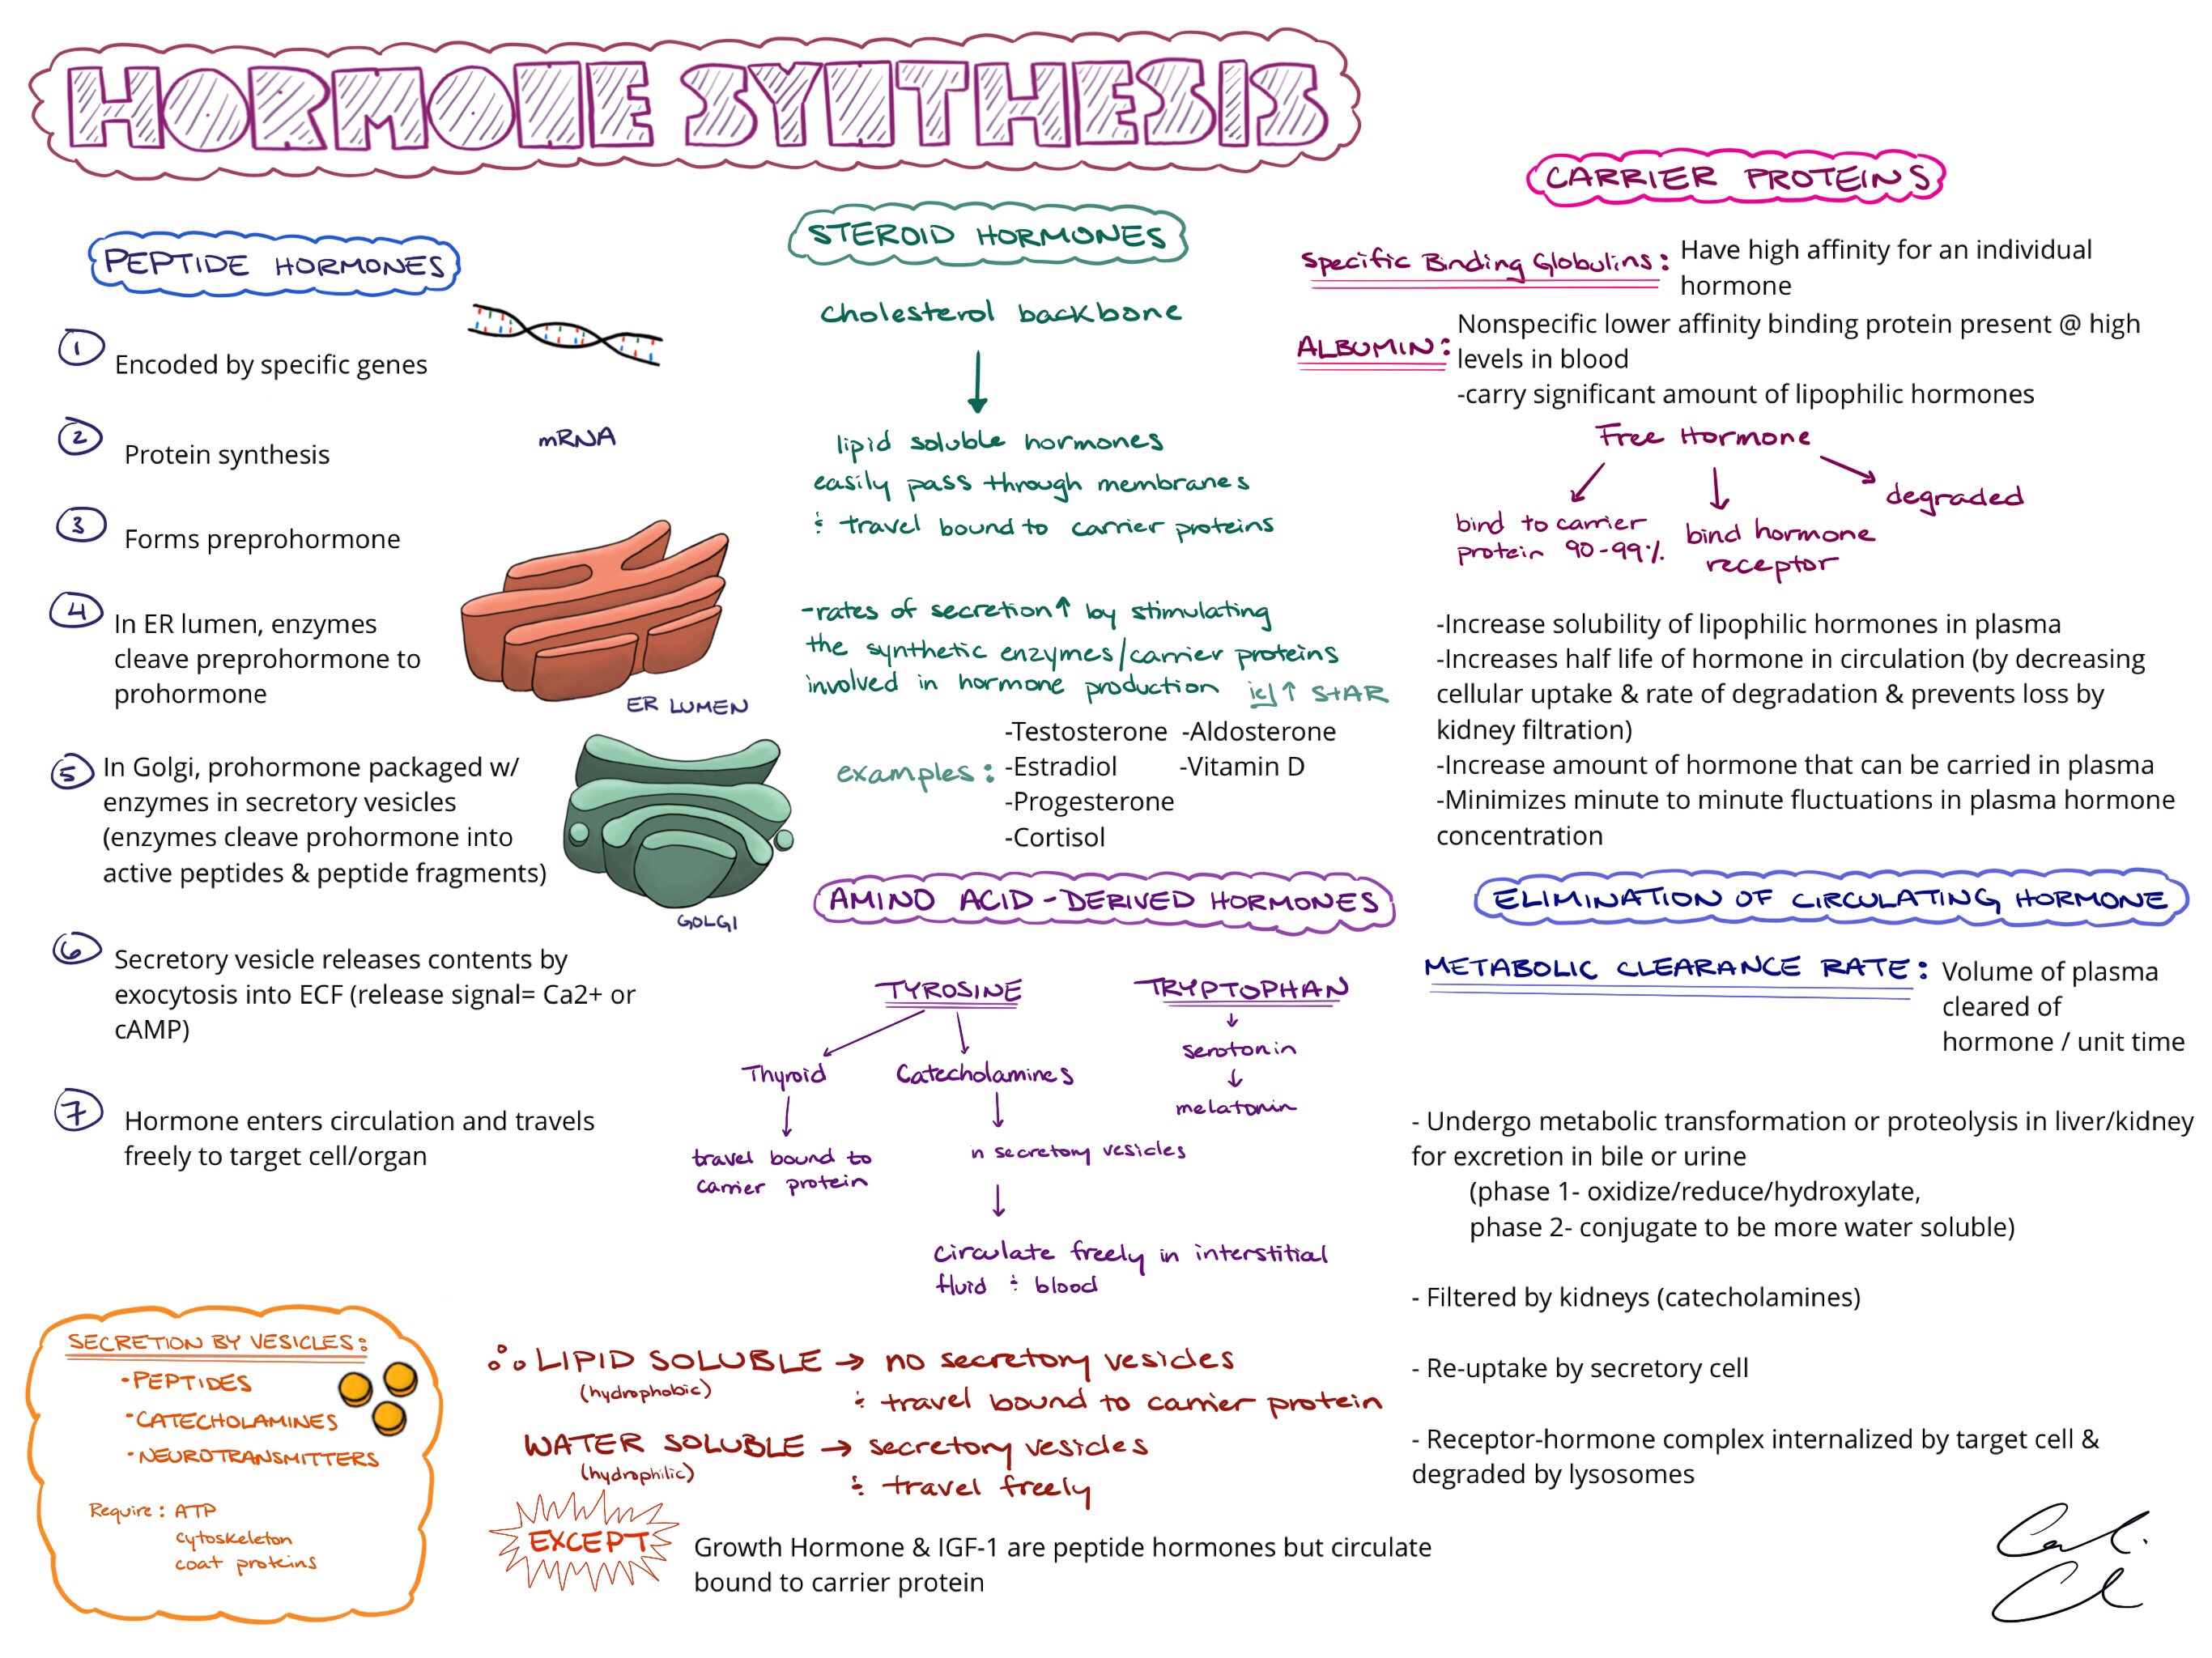 HORMONE SYNTHESIS
PEPTIDE HORMONES
1
Encoded by specific genes
2
Protein synthesis
mRNA
3
Forms preprohormone
4
In ER lumen, enzymes
cleave preprohormone to
prohormone
ER LUMEN
5
In Golgi, prohormone packaged w/
enzymes in secretory vesicles
(enzymes cleave prohormone into
active peptides & peptide fragments)
GOLGI
6
Secretory vesicle releases contents by
exocytosis into ECF (release signal= Ca2+ or
cAMP)
7
Hormone enters circulation and travels
freely to target cell/organ
SECRETION BY VESICLES:
•PEPTIDES
•CATECHOLAMINES
•NEUROTRANSMITTERS
Require: ATP
cytoskeleton
coat proteins
STEROID HORMONES
cholesterol backbone
lipid soluble hormones
easily pass through membranes
& travel bound to carrier proteins
-rates of secretion↑ by stimulating
the synthetic enzymes/carrier proteins
involved in hormone production ie) ↑ StAR
examples:
-Testosterone -Aldosterone
-Estradiol -Vitamin D
-Progesterone
-Cortisol
AMINO ACID-DERIVED HORMONES
TYROSINE
Thyroid
travel bound to
carrier protein
Catecholamines
n secretory vesicles
circulate freely in interstitial
fluid & blood
TRYPTOPHAN
serotonin
melatonin
∴ LIPID SOLUBLE → no secretory vesicles
(hydrophobic)
& travel bound to carrier protein
WATER SOLUBLE → secretory vesicles
(hydrophilic)
& travel freely
EXCEPT
Growth Hormone & IGF-1 are peptide hormones but circulate
bound to carrier protein
CARRIER PROTEINS
Specific Binding Globulins:
Have high affinity for an individual
hormone
ALBUMIN:
Nonspecific lower affinity binding protein present @ high
levels in blood
-carry significant amount of lipophilic hormones
Free Hormone
bind to carrier
protein 90-99%
bind hormone
receptor
degraded
-Increase solubility of lipophilic hormones in plasma
-Increases half life of hormone in circulation (by decreasing
cellular uptake & rate of degradation & prevents loss by
kidney filtration)
-Increase amount of hormone that can be carried in plasma
-Minimizes minute to minute fluctuations in plasma hormone
concentration
ELIMINATION OF CIRCULATING HORMONE
METABOLIC CLEARANCE RATE:
Volume of plasma
cleared of
hormone / unit time
- Undergo metabolic transformation or proteolysis in liver/kidney
for excretion in bile or urine
(phase 1- oxidize/reduce/hydroxylate,
phase 2- conjugate to be more water soluble)
- Filtered by kidneys (catecholamines)
- Re-uptake by secretory cell
- Receptor-hormone complex internalized by target cell &
degraded by lysosomes